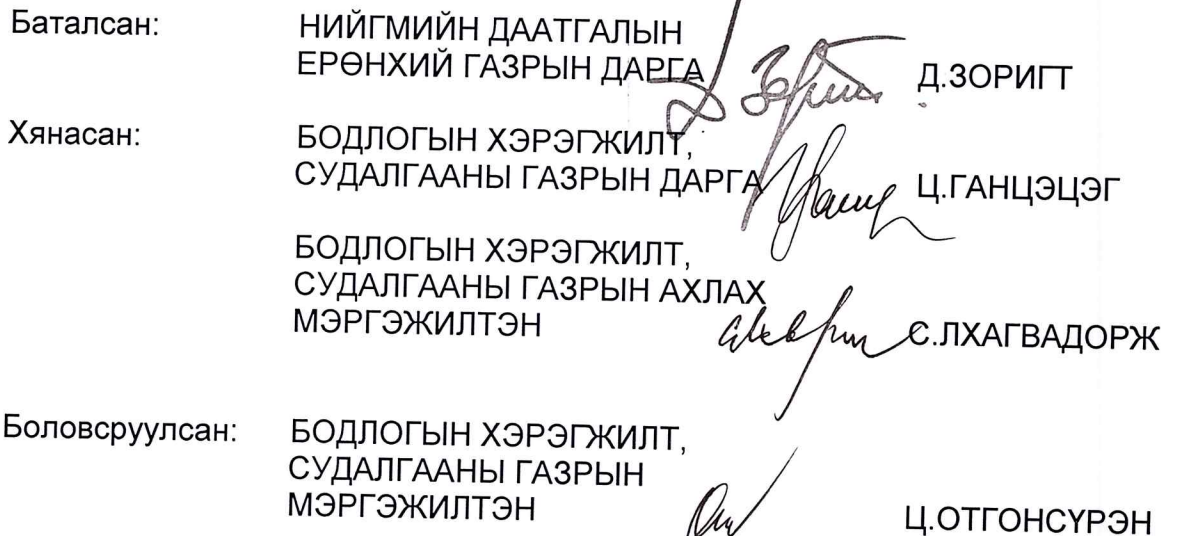 Баталсан: НИЙГМИЙН ДААТГАЛЫН
ЕРӨНХИЙ ГАЗРЫН ДАРГА Д.ЗОРИГТ
Хянасан: БОДЛОГЫН ХЭРЭГЖИЛТ,
СУДАЛГААНЫ ГАЗРЫН ДАРГА Ц.ГАНЦЭЦЭГ
БОДЛОГЫН ХЭРЭГЖИЛТ,
СУДАЛГААНЫ ГАЗРЫН АХЛАХ
МЭРГЭЖИЛТЭН С.ЛХАГВАДОРЖ
Боловсруулсан: БОДЛОГЫН ХЭРЭГЖИЛТ,
СУДАЛГААНЫ ГАЗРЫН
МЭРГЭЖИЛТЭН Ц.ОТГОНСҮРЭН